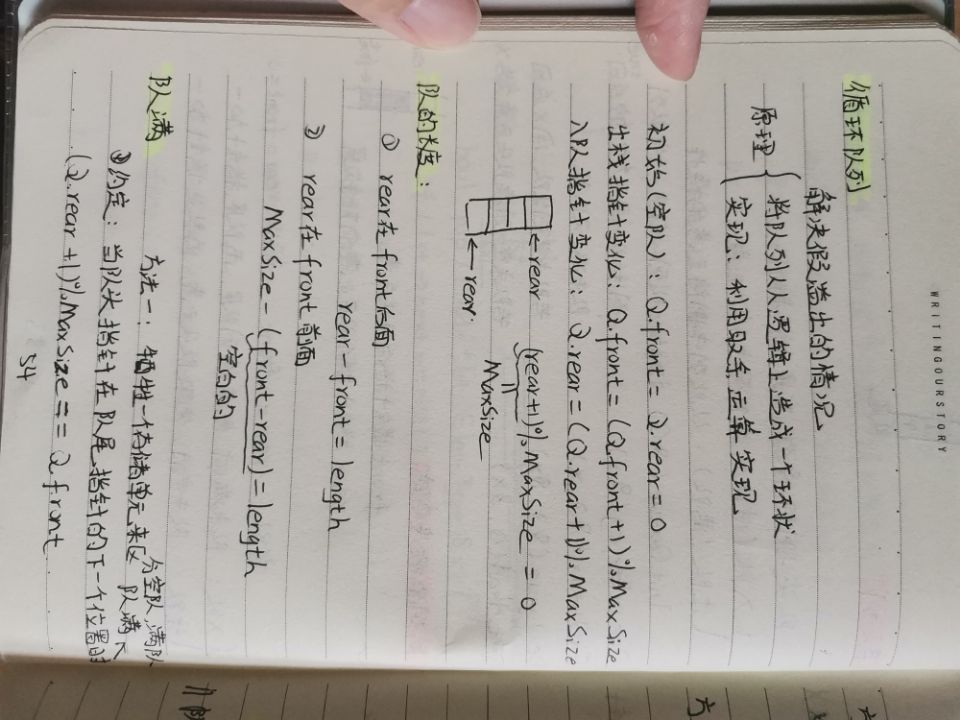 WRITINGOURSTORY
循环队列
解决假溢出的情况
原理{ 将队列从逻辑上造成一个环状
实现：利用取余运算实现
初始(空队)：Q.front = Q.rear = 0
出栈指针变化：Q.front = (Q.front+1)%MaxSize
入队指针变化：Q.rear = (Q.rear+1)%MaxSize
←rear (rear+1)%MaxSize = 0
←rear. MaxSize
队的长度：
① rear在front后面
rear-front = length
② rear在front前面
MaxSize-(front-rear)=length
空白的
队满 方法一：牺牲一个存储单元来区分空队,满队
队满
③约定：当队头指针在队尾指针的下一个位置时
(Q.rear+1)%MaxSize == Q.front
34